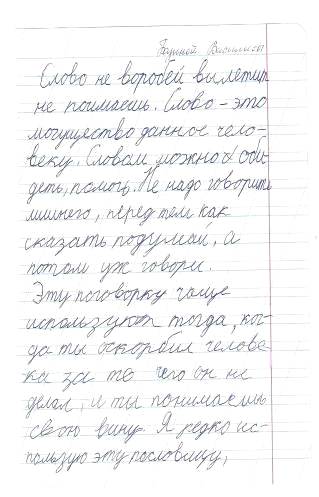 Бединой Василисы
Слово не воробей вылетит
не поймаешь. Слово - это
могущество данное чело-
веку. Словом можно и оби-
деть, помочь. Не надо говорить
лишнего, перед тем как
сказать подумай, а
потом уж говори.
Эту поговорку чаще
используют тогда, ког-
да ты оскорбил челове
ка за то чего он не
делал, и ты понимаешь
свою вину. Я редко ис-
пользую эту пословицу,